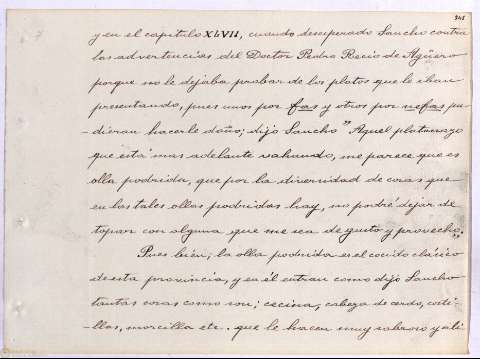 y en el capítulo XLVII, cuando desesperado Sancho contra
las advertencias del Doctor Pedro Recio de Agüero
porque no le dejaba probar de los platos que le iban
presentando, pues unos por fas y otros por nefas pu-
-dieran hacerle daño; dijo Sancho "Aquel platonazo
que está mas adelante vahando, me parece que es
olla podrida, que por la diversidad de cosas que
en las tales ollas podridas hay, no podré dejar de
topar con alguna que me sea de gusto y provecho".
Pues bien; la olla podrida es el cocido clásico
de esta provincia, y en él entran como dijo Sancho
tantas cosas como son; cecina, cabeza de cerdo, costi-
-llas, morcilla etc. que le hacen muy sabroso y ali-